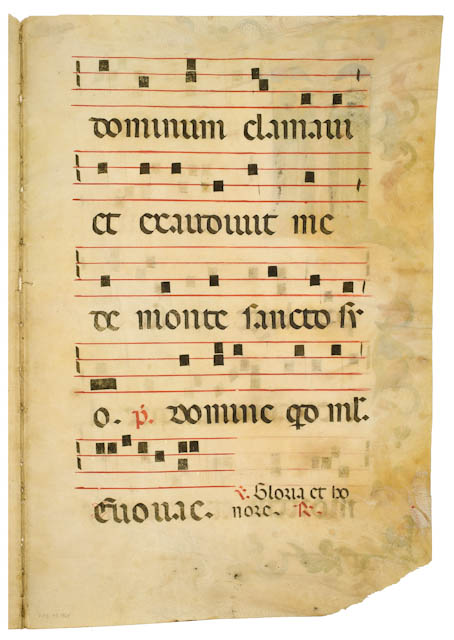 dominum clamaui
et exaudiuit me
de monte sancto sy
o. p. Domine qd ml̃.
Euouae. v. Gloria et ho
nore. R.